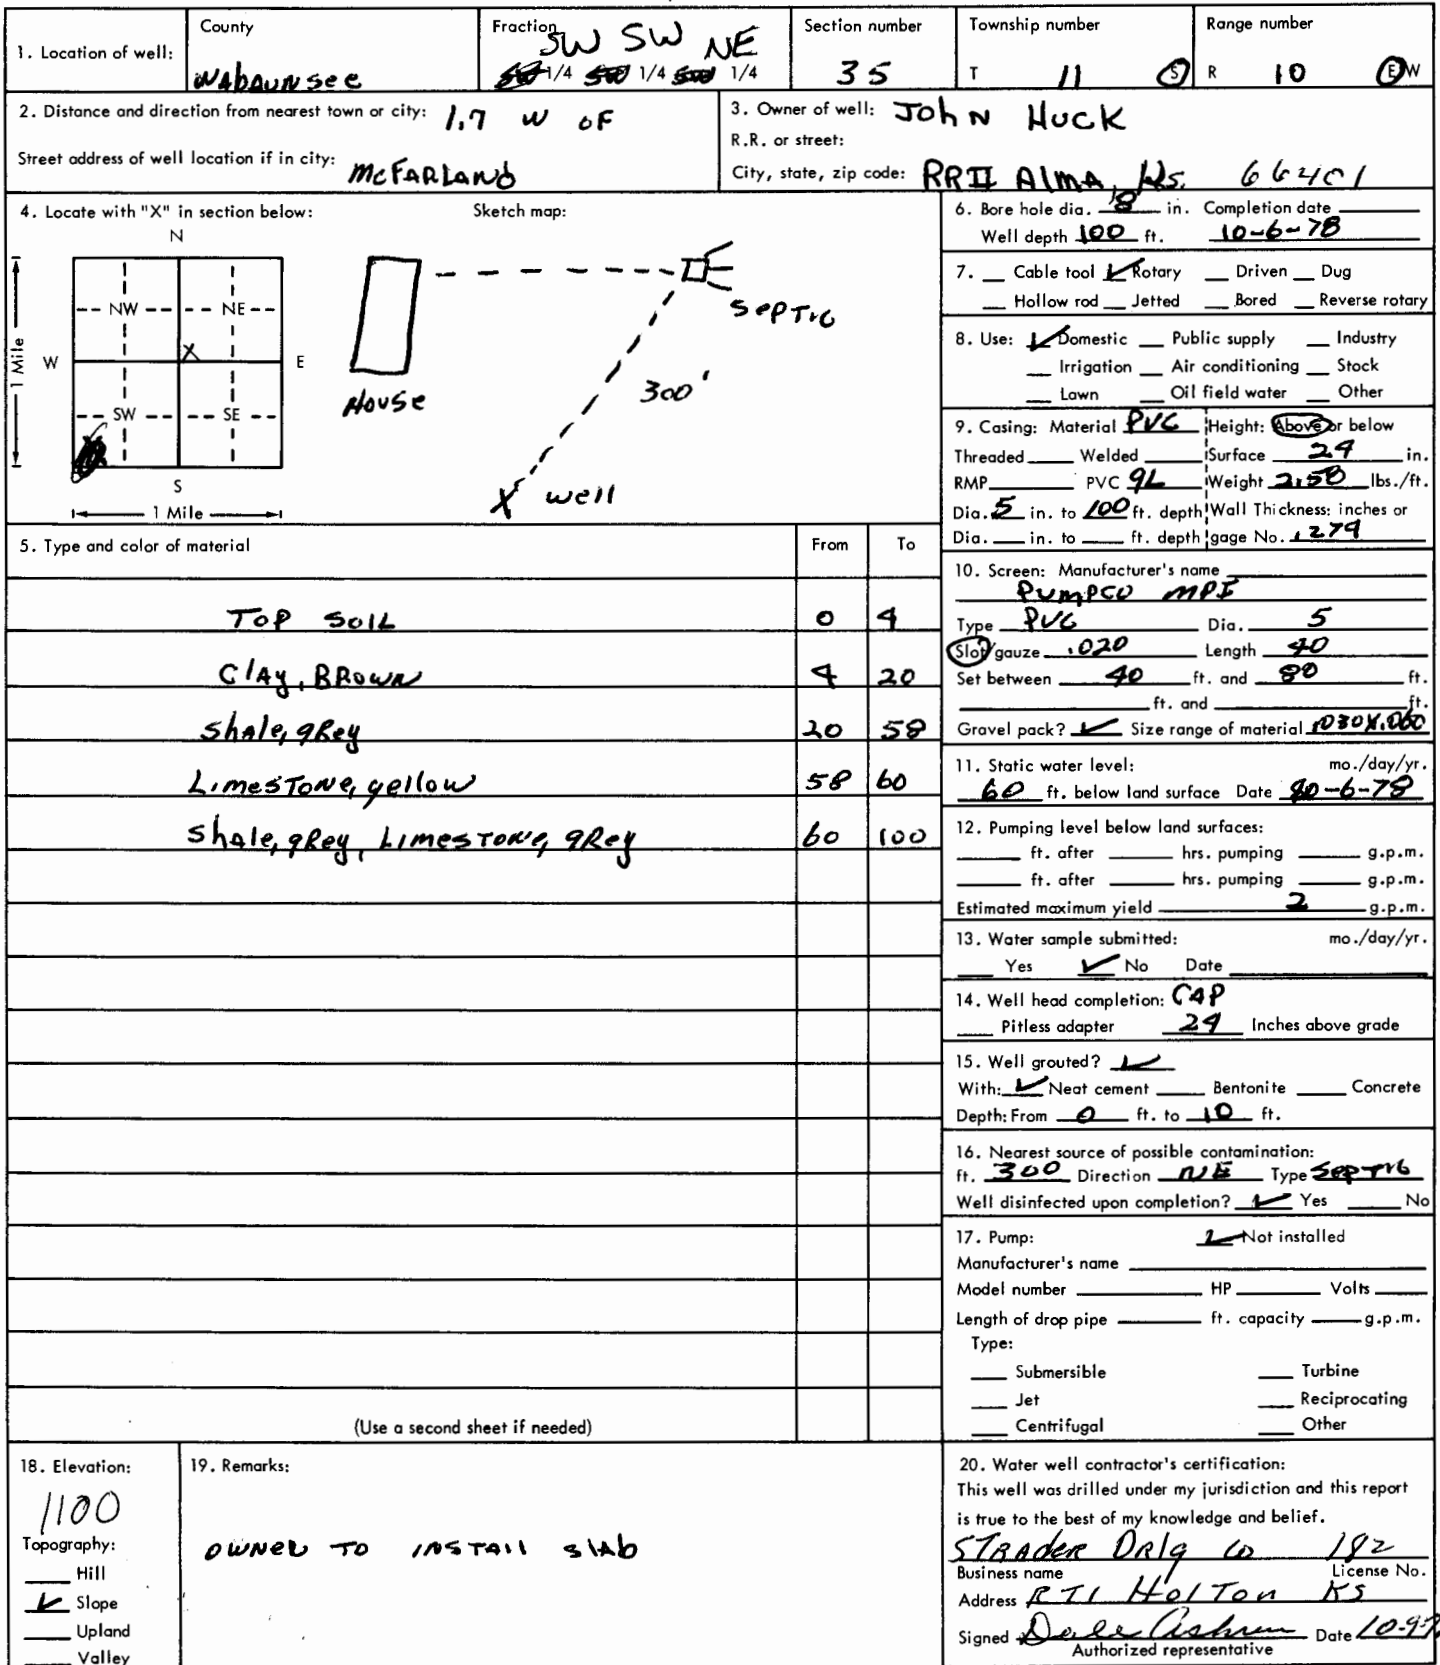 1. Location of well:
County
Wabaunsee
Fraction
SW SW NE
1/4 1/4 1/4
Section number
35
Township number
T 11 S
Range number
R 10 E W
2. Distance and direction from nearest town or city: 1.7 W of
Street address of well location if in city: McFarland
3. Owner of well: John Huck
R.R. or street:
City, state, zip code: RRII Alma, Ks. 66401
4. Locate with "X" in section below:
Sketch map:
N
NW NE
W X E
SW SE
S
1 Mile
1 Mile
House
Septic
300'
X well
5. Type and color of material From To
Top Soil 0 4
Clay, Brown 4 20
Shale, grey 20 58
Limestone, yellow 58 60
Shale, grey, Limestone, grey 60 100
(Use a second sheet if needed)
6. Bore hole dia. 8 in. Completion date
Well depth 100 ft. 10-6-78
7. Cable tool ✓ Rotary Driven Dug
Hollow rod Jetted Bored Reverse rotary
8. Use: ✓ Domestic Public supply Industry
Irrigation Air conditioning Stock
Lawn Oil field water Other
9. Casing: Material PVC Height: Above or below
Threaded Welded Surface 24 in.
RMP PVC GL Weight 2.58 lbs./ft.
Dia. 5 in. to 100 ft. depth Wall Thickness: inches or
Dia. in. to ft. depth gage No. .274
10. Screen: Manufacturer's name
Pumpco MPI
Type PVC Dia. 5
Slot/gauze .020 Length 40
Set between 40 ft. and 80 ft.
ft. and ft.
Gravel pack? ✓ Size range of material .030X.060
11. Static water level: mo./day/yr.
60 ft. below land surface Date 10-6-78
12. Pumping level below land surfaces:
ft. after hrs. pumping g.p.m.
ft. after hrs. pumping g.p.m.
Estimated maximum yield 2 g.p.m.
13. Water sample submitted: mo./day/yr.
Yes ✓ No Date
14. Well head completion: CAP
Pitless adapter 24 Inches above grade
15. Well grouted? ✓
With: ✓ Neat cement Bentonite Concrete
Depth: From 0 ft. to 10 ft.
16. Nearest source of possible contamination:
ft. 300 Direction NE Type Septic
Well disinfected upon completion? ✓ Yes No
17. Pump: ✓ Not installed
Manufacturer's name
Model number HP Volts
Length of drop pipe ft. capacity g.p.m.
Type:
Submersible Turbine
Jet Reciprocating
Centrifugal Other
18. Elevation:
1100
Topography:
Hill
✓ Slope
Upland
Valley
19. Remarks:
owner to install slab
20. Water well contractor's certification:
This well was drilled under my jurisdiction and this report
is true to the best of my knowledge and belief.
Strader Drlg Co 182
Business name License No.
Address RT1 Holton KS
Signed Dale Date
Authorized representative